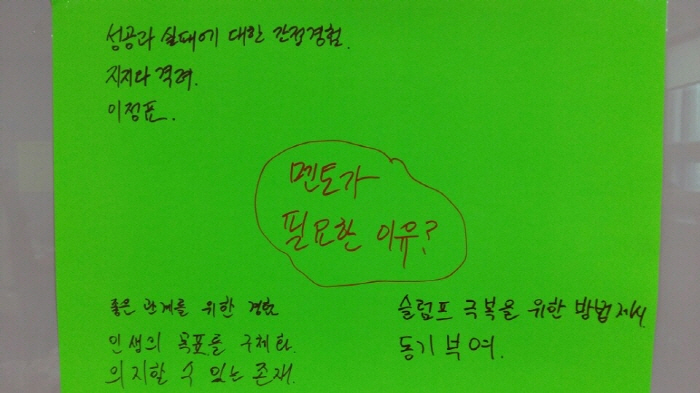 성공과 실패에 대한 간접경험.
지지와 격려.
이정표.
멘토가
필요한 이유?
좋은 관계를 위한 경험
인생의 목표를 구체화.
의지할 수 있는 존재.
슬럼프 극복을 위한 방법제시.
동기부여.